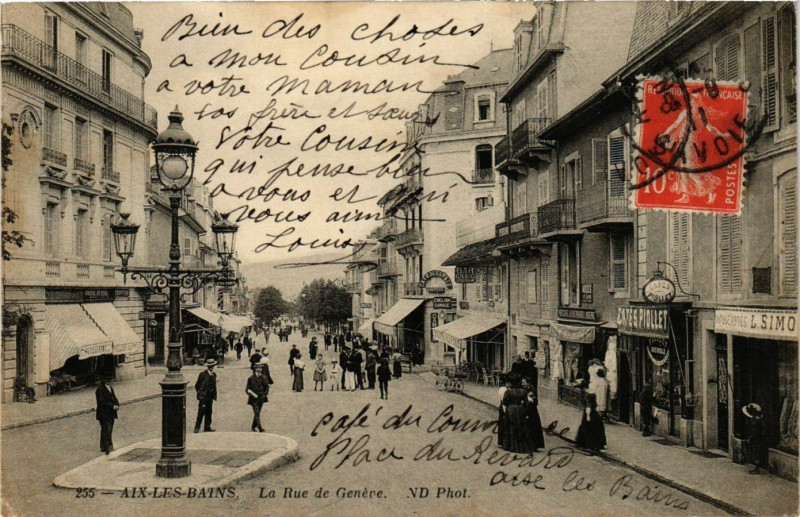 Bien des choses
a mon cousin
a votre maman
vos frère et sœur
Votre Cousin
qui pense bien
a vous et qui
vous aime
Louis
RF
10
POSTES
SAVOIE
CAFÉ RIOLLET
L. SIMO
café du Commerce
Place du Revard
aix les Bains
255 — AIX-LES-BAINS. La Rue de Genève. ND Phot.